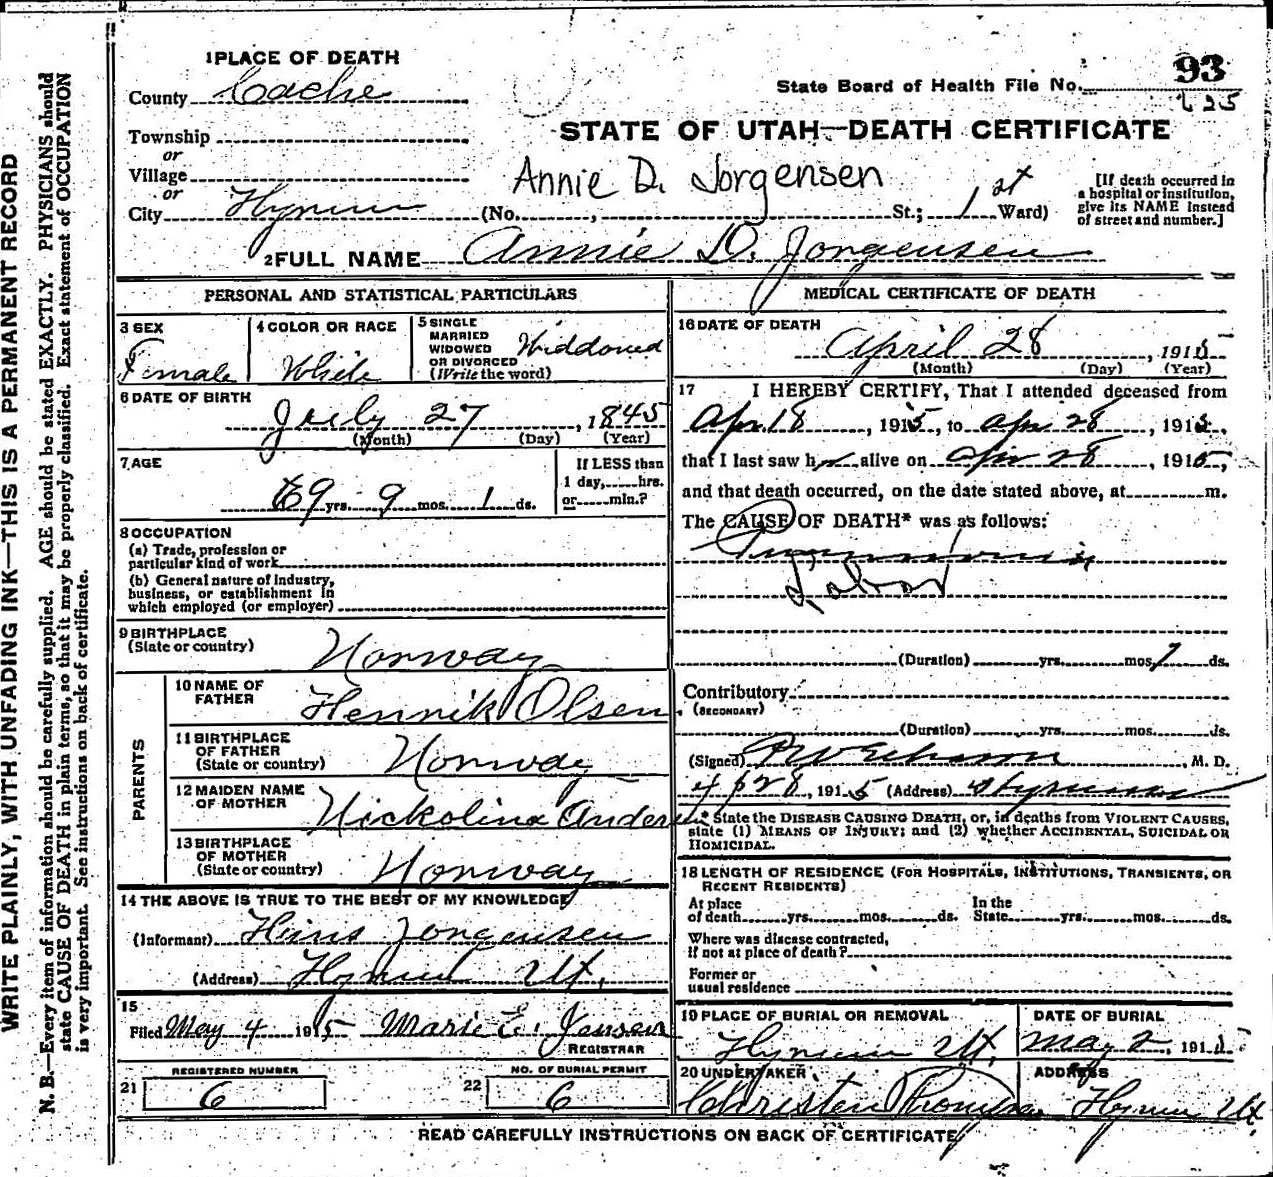 WRITE PLAINLY, WITH UNFADING INK—THIS IS A PERMANENT RECORD
N. B.—Every item of information should be carefully supplied. AGE should be stated EXACTLY. PHYSICIANS should
state CAUSE OF DEATH in plain terms, so that it may be properly classified. Exact statement of OCCUPATION
is very important. See instructions on back of certificate.
1 PLACE OF DEATH
County Cache
Township
or
Village
or
City Hyrum
93
State Board of Health File No.
225
STATE OF UTAH—DEATH CERTIFICATE
Annie D. Jorgensen
(No. , St.; 1st Ward)
[If death occurred in
a hospital or institution,
give its NAME instead
of street and number.]
2 FULL NAME Annie D. Jorgensen
PERSONAL AND STATISTICAL PARTICULARS
3 SEX
Female
4 COLOR OR RACE
White
5 SINGLE
MARRIED
WIDOWED
OR DIVORCED
(Write the word)
Widdowed
6 DATE OF BIRTH
July 27, 1845
(Month) (Day) (Year)
7 AGE
69 yrs. 9 mos. 1 ds.
If LESS than
1 day, hrs.
or min.?
8 OCCUPATION
(a) Trade, profession or
particular kind of work
(b) General nature of industry,
business, or establishment in
which employed (or employer)
9 BIRTHPLACE
(State or country)
Norway
PARENTS
10 NAME OF
FATHER
Henrik Olsen
11 BIRTHPLACE
OF FATHER
(State or country)
Norway
12 MAIDEN NAME
OF MOTHER
Nickolina
13 BIRTHPLACE
OF MOTHER
(State or country)
Norway
14 THE ABOVE IS TRUE TO THE BEST OF MY KNOWLEDGE
(Informant) Jorgensen
(Address) Hyrum Ut.
15
Filed May 4 1915 Marie E. Jensen
REGISTRAR
REGISTERED NUMBER
21 6
NO. OF BURIAL PERMIT
22 6
MEDICAL CERTIFICATE OF DEATH
16 DATE OF DEATH
April 28, 1915
(Month) (Day) (Year)
17 I HEREBY CERTIFY, That I attended deceased from
Apr. 18, 1915, to Apr 28, 1915,
that I last saw her alive on Apr 28, 1915,
and that death occurred, on the date stated above, at m.
The CAUSE OF DEATH* was as follows:
(Duration) yrs. mos. 7 ds.
Contributory
(SECONDARY)
(Duration) yrs. mos. ds.
(Signed) , M. D.
4/28, 1915 (Address) Hyrum
* State the DISEASE CAUSING DEATH, or, in deaths from VIOLENT CAUSES,
state (1) MEANS OF INJURY; and (2) whether ACCIDENTAL, SUICIDAL OR
HOMICIDAL.
18 LENGTH OF RESIDENCE (FOR HOSPITALS, INSTITUTIONS, TRANSIENTS, OR
RECENT RESIDENTS)
At place
of death yrs. mos. ds.
In the
State yrs. mos. ds.
Where was disease contracted,
if not at place of death?
Former or
usual residence
19 PLACE OF BURIAL OR REMOVAL
Hyrum Ut.
DATE OF BURIAL
May 2, 1915
20 UNDERTAKER
Christen
ADDRESS
Hyrum Ut.
READ CAREFULLY INSTRUCTIONS ON BACK OF CERTIFICATE